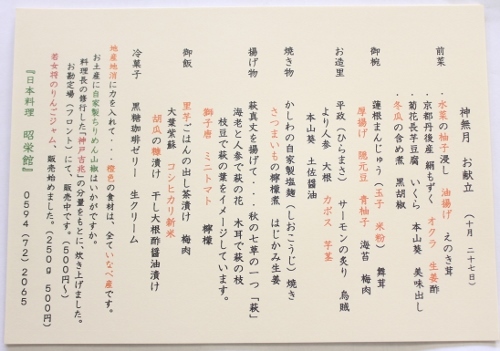 神無月　お献立　（十月　二十七日）
前菜　・水菜の柚子浸し　油揚げ　えのき茸
・京都丹後産　絹もずく　オクラ　生姜酢
・菊花長芋豆腐　いくら　本山葵　美味出し
・冬瓜の含め煮　黒胡椒
御椀　蓮根まんじゅう（玉子　米粉）　舞茸
厚揚げ　隠元豆　青柚子　海苔　梅肉
お造里　平政（ひらまさ）　サーモンの炙り　烏賊
より人参　大根　カボス　芋茎
本山葵　土佐醤油
焼き物　かしわの自家製塩麹（しおこうじ）焼き
さつまいもの檸檬煮　はじかみ生姜
揚げ物　萩真丈を揚げて・・・秋の七草の一つ「萩」
海老と人参で萩の花　木耳で萩の枝
枝豆で萩の葉をイメージしています。
獅子唐　ミニトマト　檸檬
御飯　里芋ごはんの出し茶漬け　梅肉
大葉紫蘇　コシヒカリ新米
胡瓜の糠漬け　干し大根酢醤油漬け
冷菓子　黒糖珈琲ゼリー　生クリーム
地産地消に力を入れて・・・橙色の食材は、全ていなべ産です。
お土産に自家製ちりめん山椒はいかがですか。
料理長の修行した「神戸吉兆」の分量をもとに、炊き上げました。
お勘定場（フロント）にて、販売中です。（500円～）
若女将のりんごジャム、販売始めました。（250g　500円）
『日本料理　昭栄館』　0594（72）2065